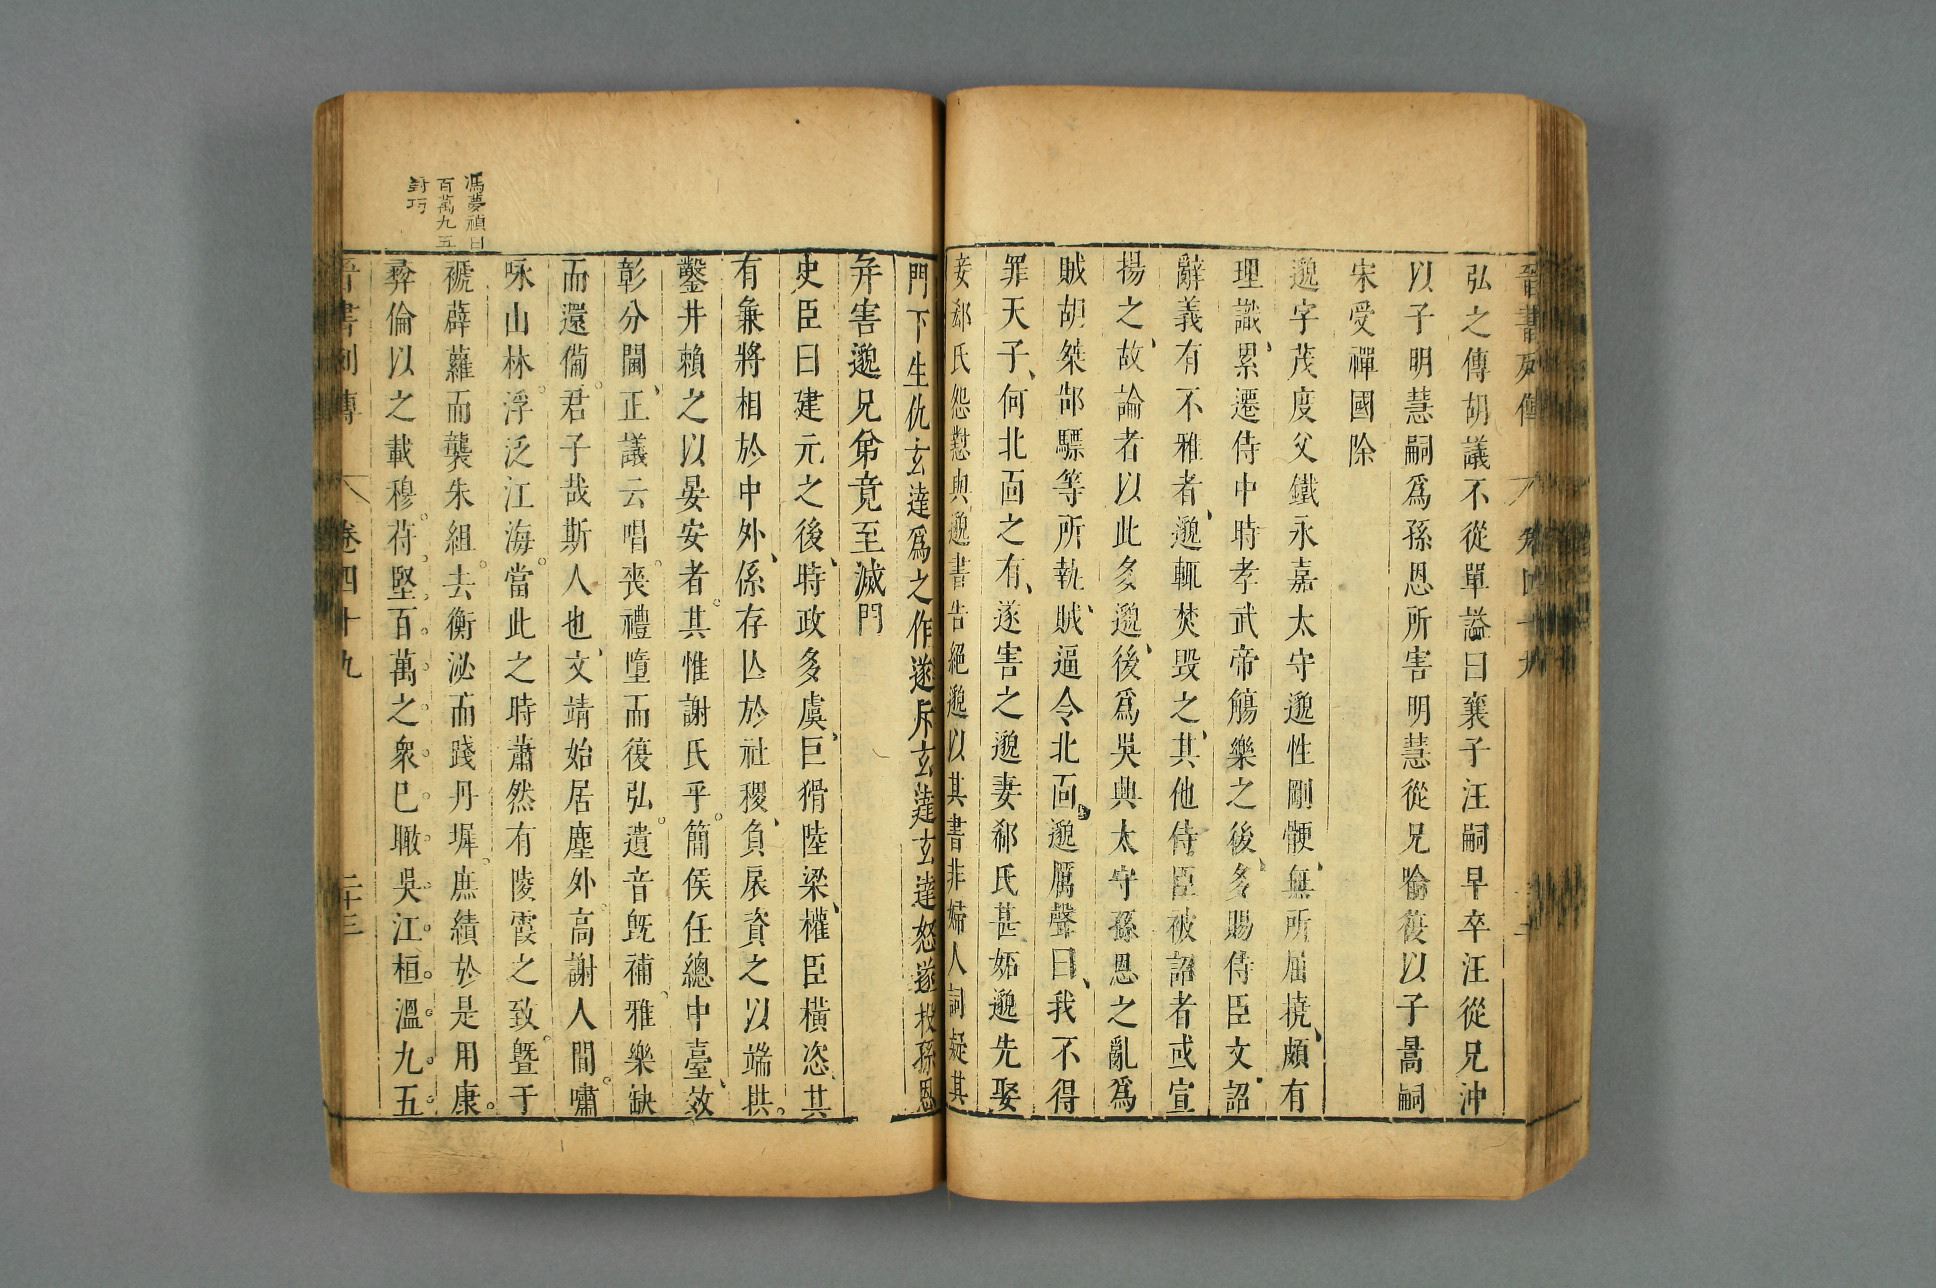 晉書列傳 卷四十九
弘之傳胡議不從單謚曰襄子汪嗣早卒汪從兄沖
以子明慧嗣爲孫恩所害明慧從兄喻復以子暠嗣
宋受禪國除
邈字茂度父鐵永嘉太守邈性剛骾無所屈撓頗有
理識累遷侍中時孝武帝觴樂之後多賜侍臣文詔
辭義有不雅者邈輒焚毀之其他侍臣被詔者或宣
揚之故論者以此多邈後爲吳興太守孫恩之亂爲
賊胡桀郜驃等所執賊逼令北面邈厲聲曰我不得
罪天子何北面之有遂害之邈妻郗氏甚妬邈先娶
妾郗氏怨懟與邈書告絕邈以其書非婦人詞疑其
門下生仇玄達爲之作遂斥玄達玄達怒遂投孫恩
并害邈兄弟竟至滅門
史臣曰建元之後時政多虞巨猾陸梁權臣橫恣其
有兼將相於中外係存亾於社稷負扆資之以端拱
鑿井賴之以晏安者其惟謝氏乎簡侯任總中臺效
彰分閫正議云唱喪禮墮而復弘遺音旣補雅樂缺
而還備君子哉斯人也文靖始居塵外高謝人間嘯
咏山林浮泛江海當此之時蕭然有陵霞之致曁于
褫薜蘿而襲朱組去衡泌而踐丹墀庶績於是用康
彝倫以之載穆苻堅百萬之衆已瞰吳江桓溫九五
馮夢禎曰
百萬九五
對巧
晉書列傳 卷四十九 二十三